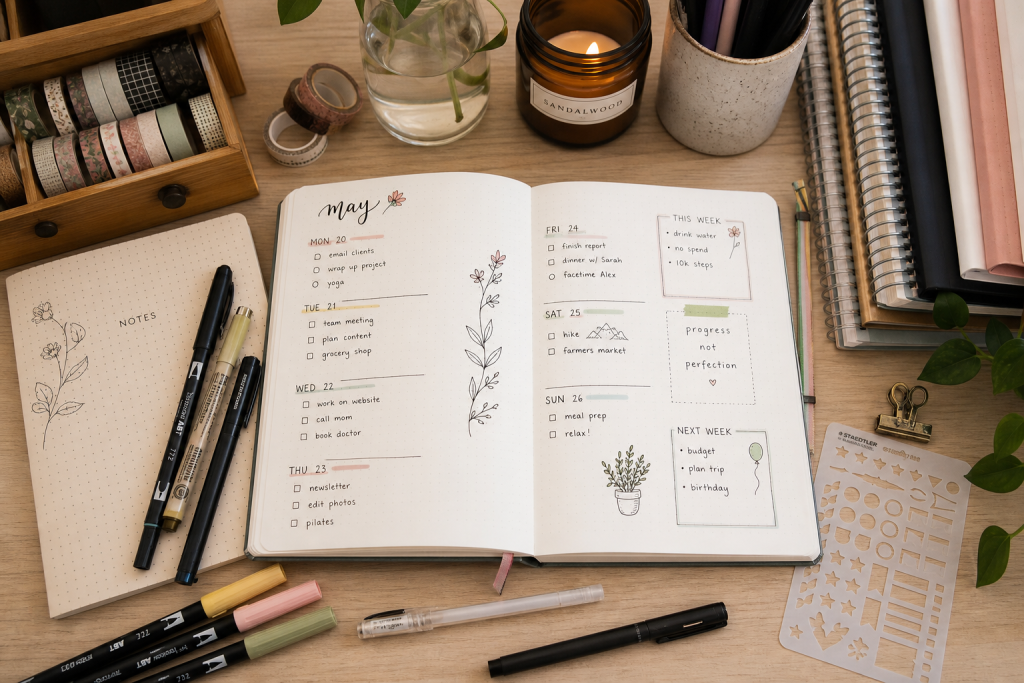 SANDALWOOD
NOTES
may
MON 20
email clients
wrap up project
yoga
TUE 21
team meeting
plan content
grocery shop
WED 22
work on website
call mom
book doctor
THU 23
newsletter
edit photos
pilates
FRI 24
finish report
dinner w/ Sarah
facetime Alex
SAT 25
hike
farmers market
SUN 26
meal prep
relax!
THIS WEEK
• drink water
• no spend
• 10k steps
progress
not
perfection
NEXT WEEK
• budget
• plan trip
• birthday
STAEDTLER
ABT
772
722
ABT